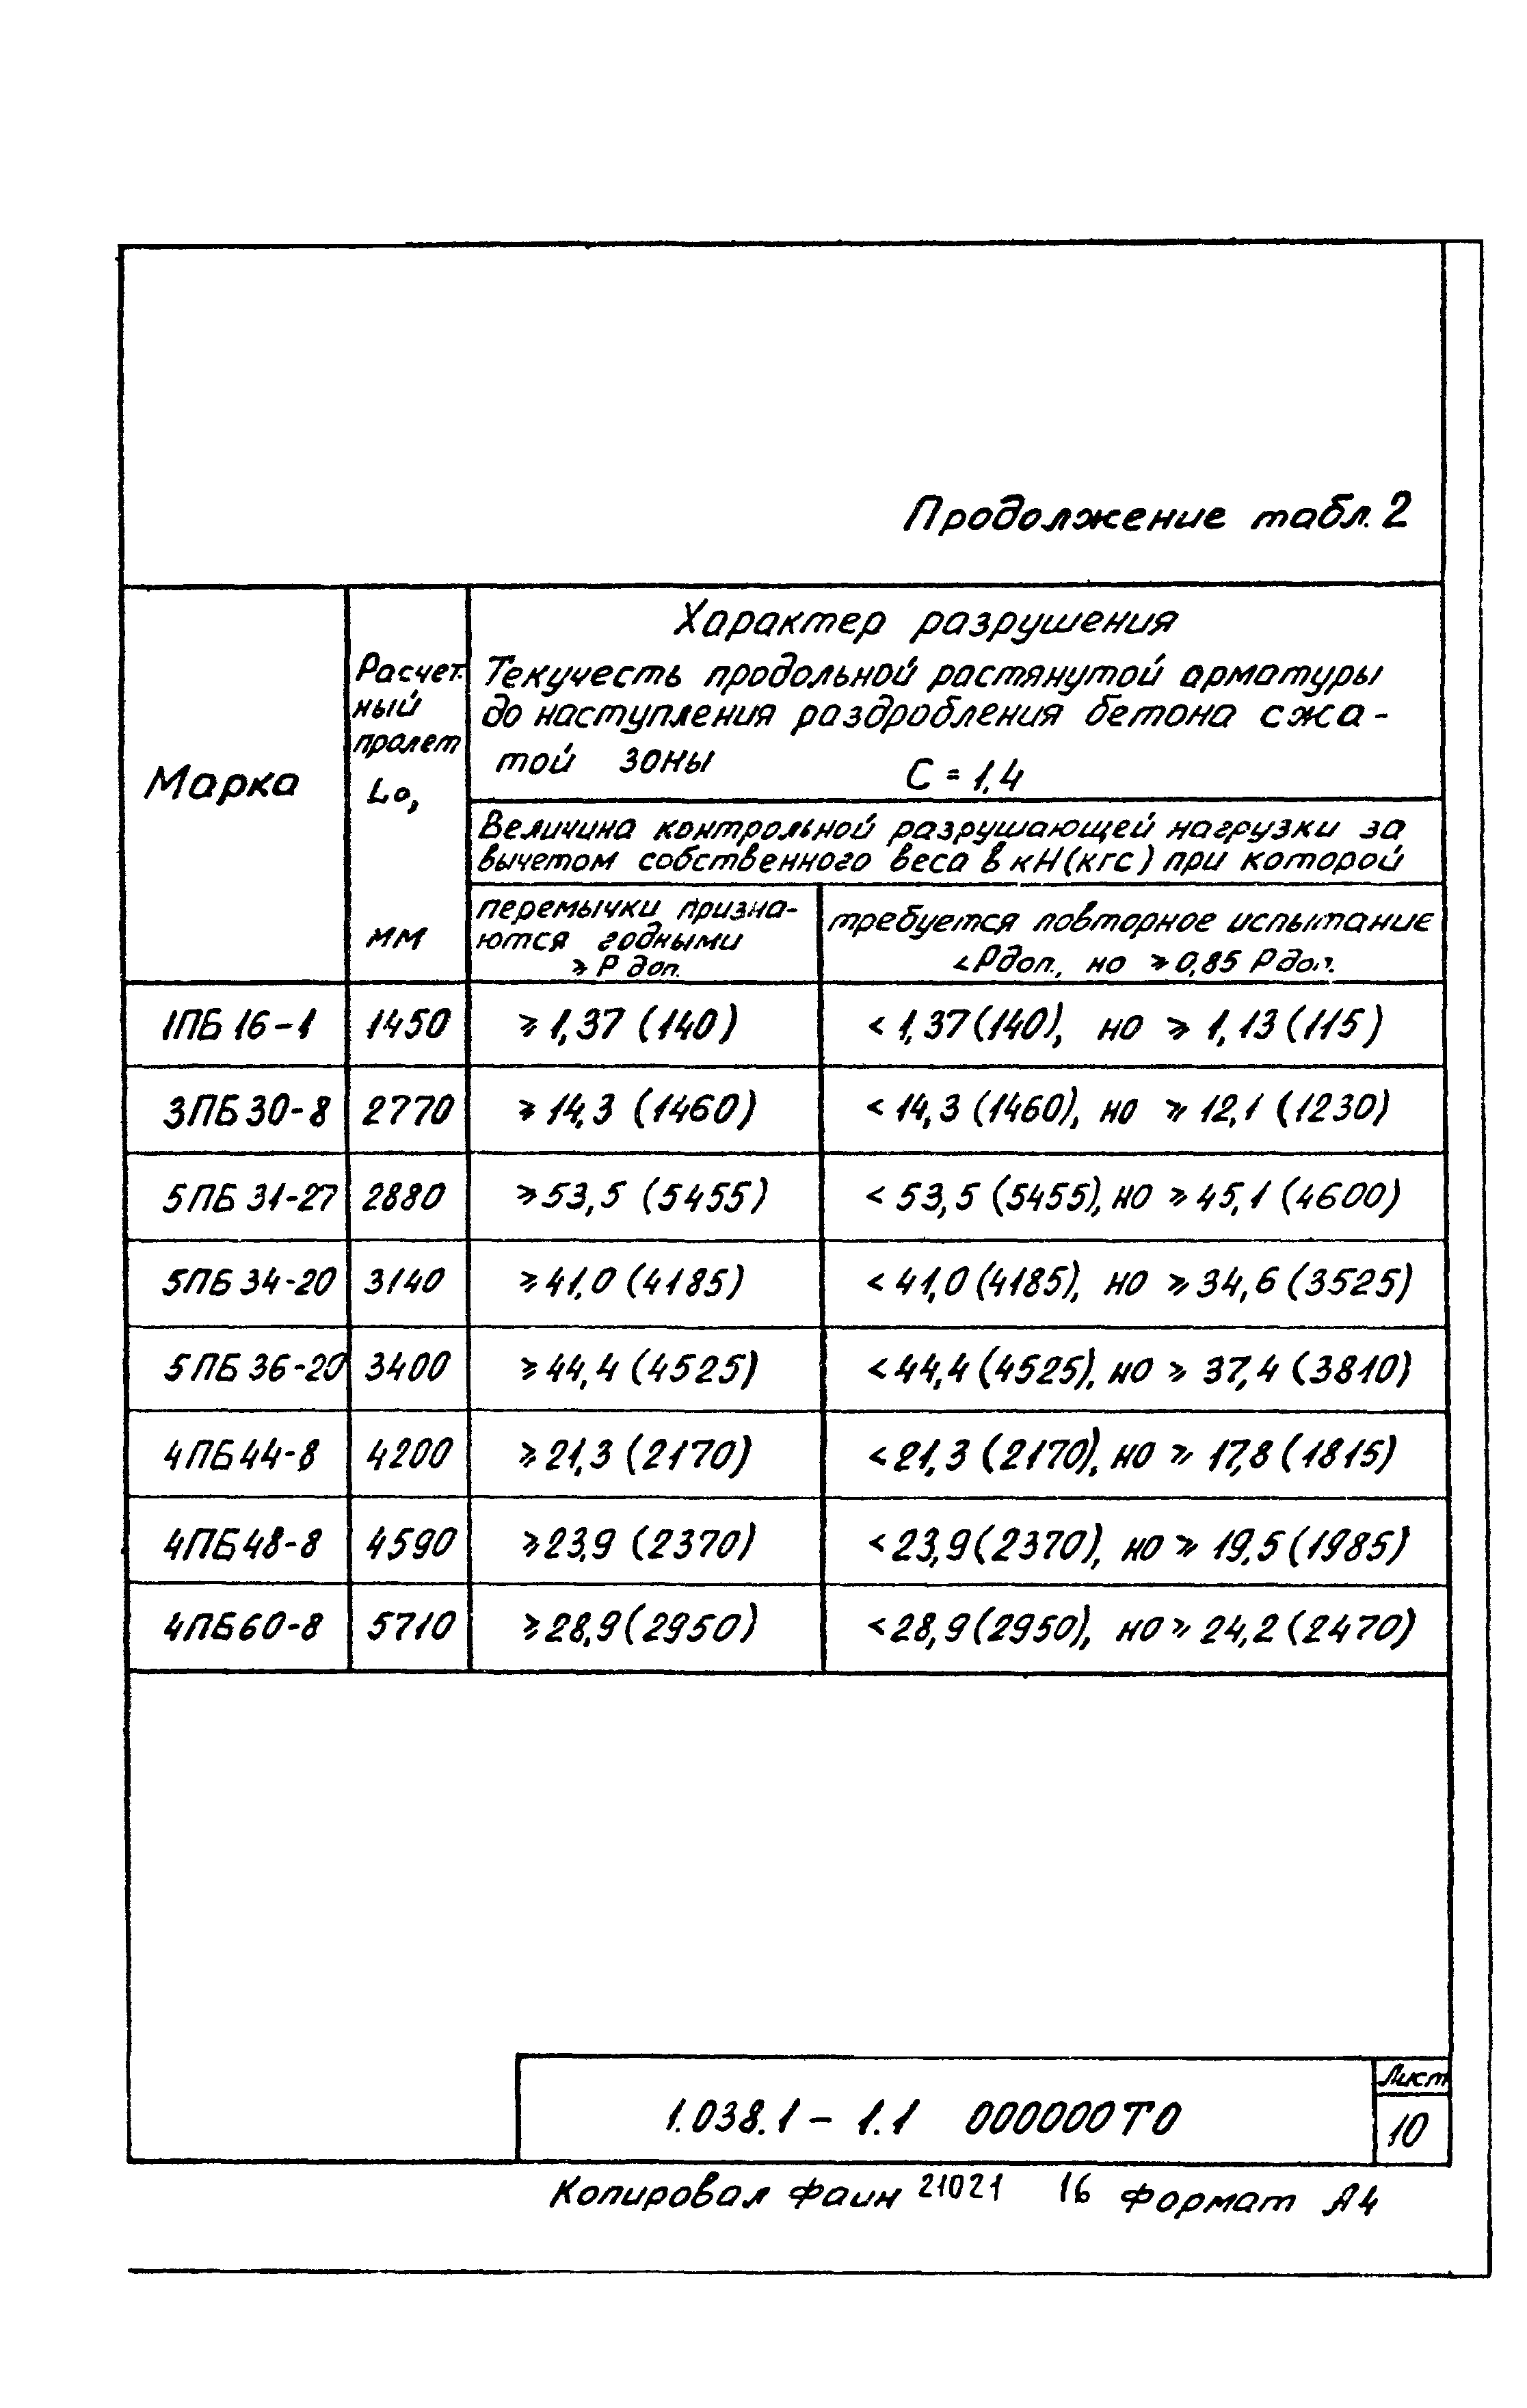 Продолжение табл. 2
Марка
Расчет.
ный
пролет
Lo,
мм
Характер разрушения
Текучесть продольной растянутой арматуры
до наступления раздробления бетона сжа-
той зоны C = 1,4
Величина контрольной разрушающей нагрузки за
вычетом собственного веса в кН(кгс) при которой
перемычки призна-
ются годными
≥ Р доп.
требуется повторное испытание
< Рдоп., но ≥ 0,85 Рдоп.
1ПБ 16-1 1450 ≥ 1,37 (140) < 1,37 (140), но ≥ 1,13 (115)
3ПБ 30-8 2770 ≥ 14,3 (1460) < 14,3 (1460), но ≥ 12,1 (1230)
5ПБ 31-27 2880 ≥ 53,5 (5455) < 53,5 (5455), но ≥ 45,1 (4600)
5ПБ 34-20 3140 ≥ 41,0 (4185) < 41,0 (4185), но ≥ 34,6 (3525)
5ПБ 36-20 3400 ≥ 44,4 (4525) < 44,4 (4525), но ≥ 37,4 (3810)
4ПБ 44-8 4200 ≥ 21,3 (2170) < 21,3 (2170), но ≥ 17,8 (1815)
4ПБ 48-8 4590 ≥ 23,9 (2370) < 23,9 (2370), но ≥ 19,5 (1985)
4ПБ 60-8 5710 ≥ 28,9 (2950) < 28,9 (2950), но ≥ 24,2 (2470)
1.038.1 - 1.1 000000ТО
Лист
10
Копировал Фаин 21021 16 Формат А4